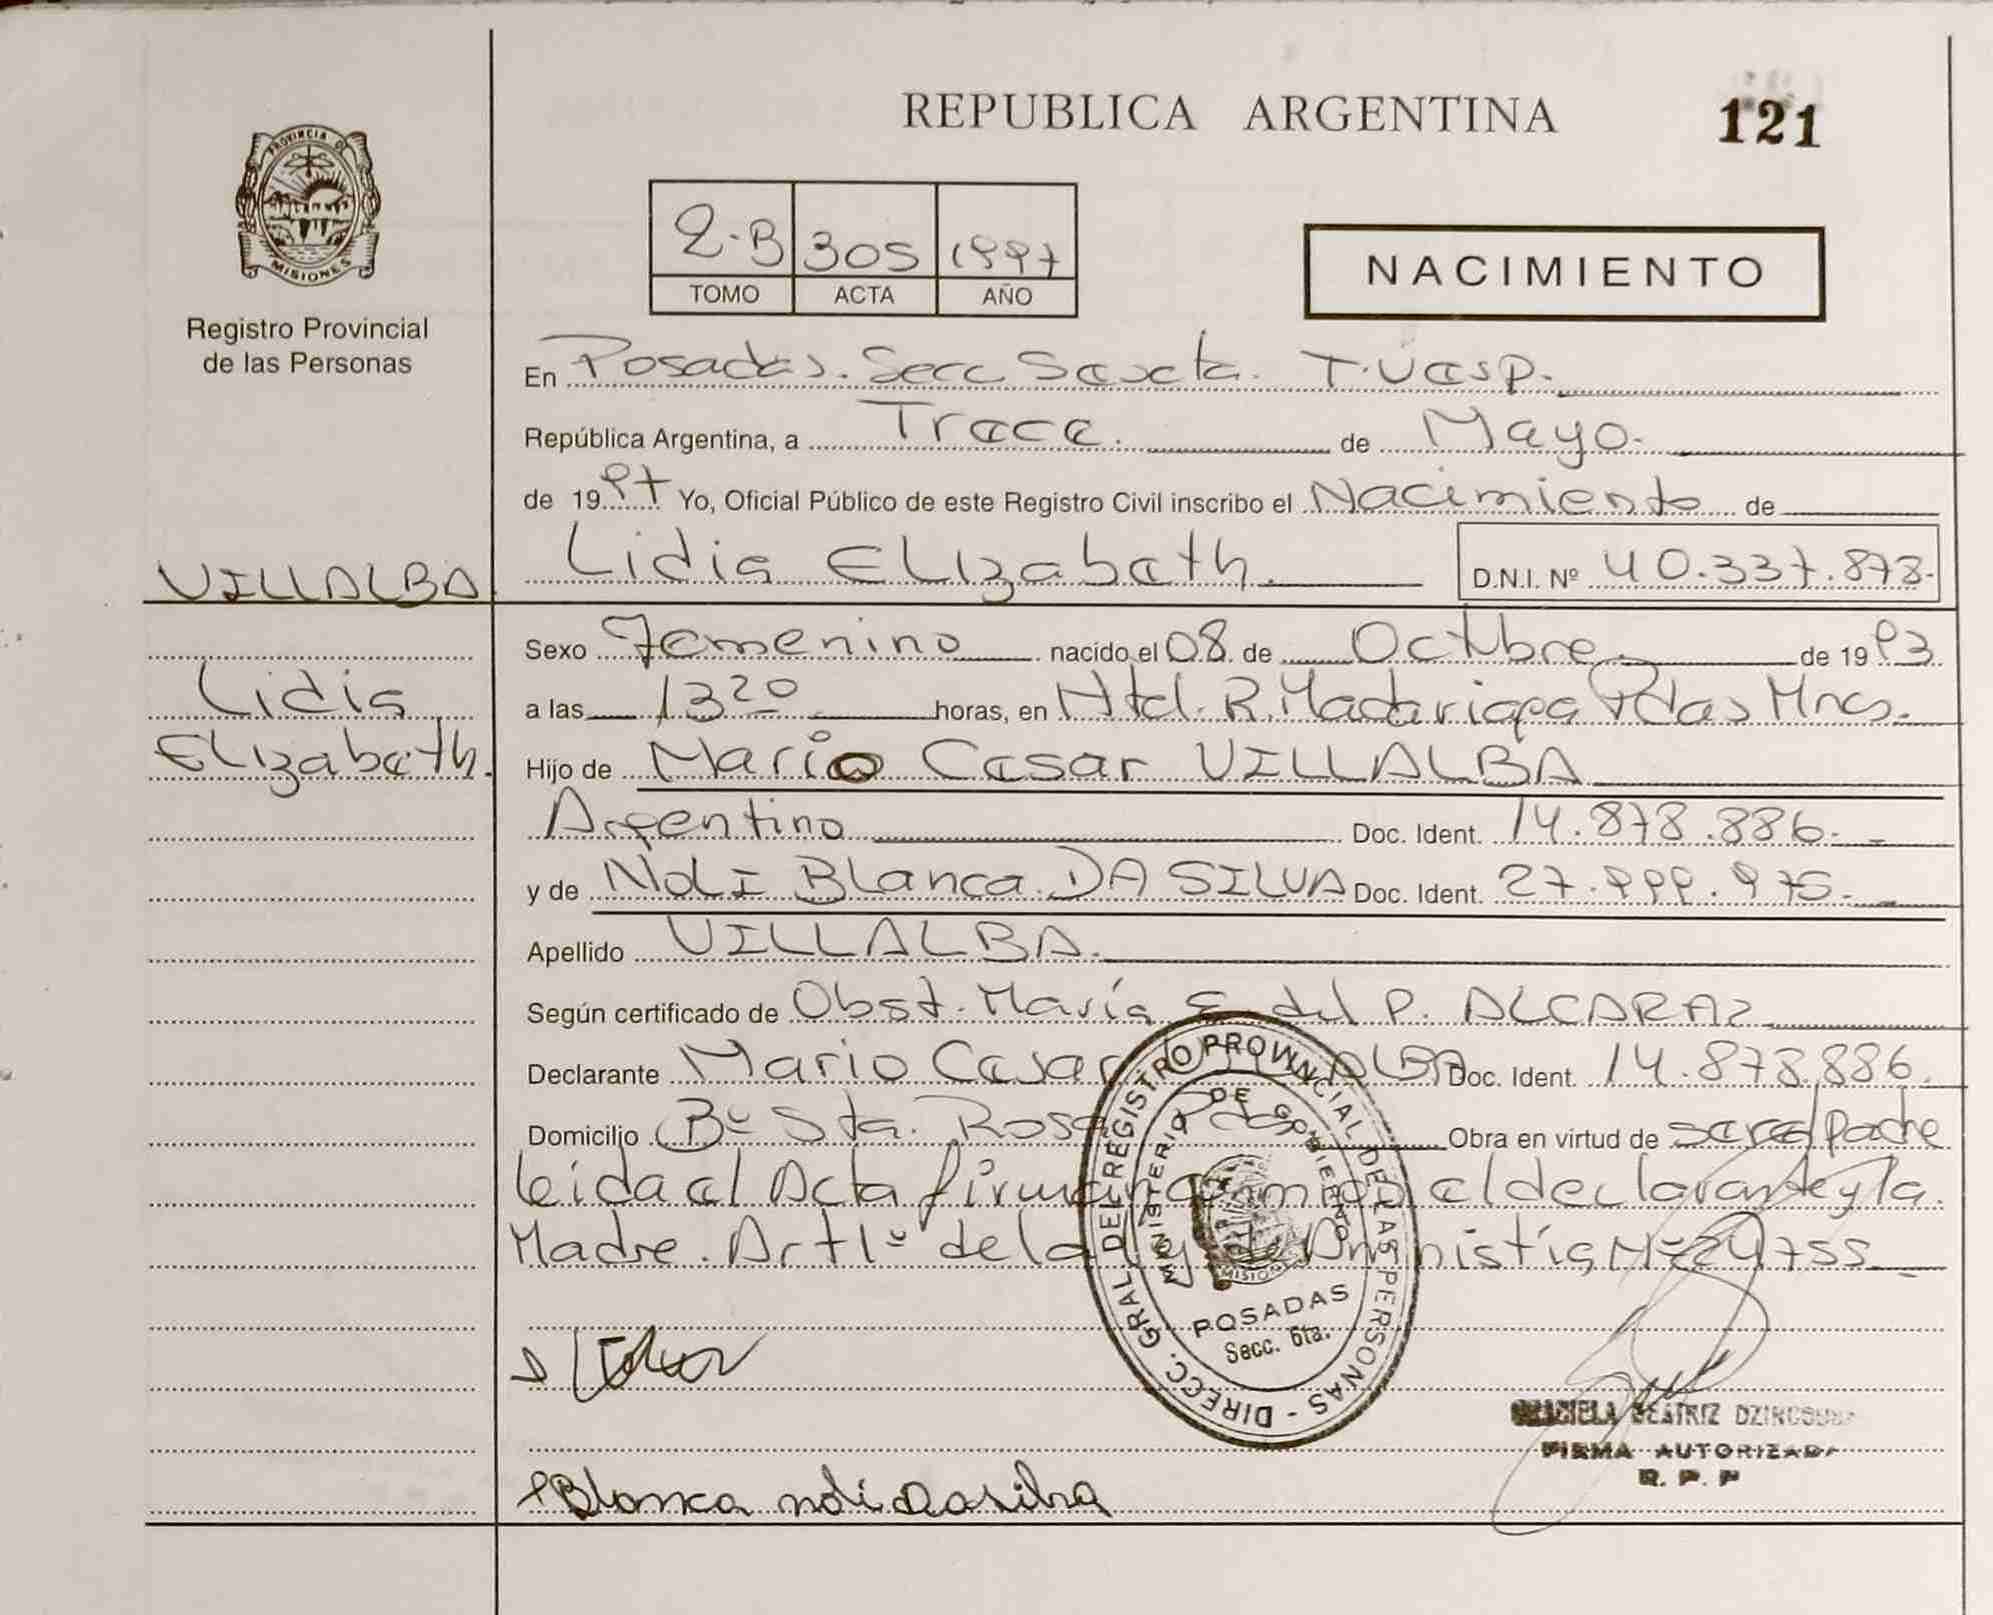 REPUBLICA ARGENTINA
121
PROVINCIA DE
MISIONES
Registro Provincial
de las Personas
2-B 305 1997
TOMO ACTA AÑO
NACIMIENTO
En Posadas. Secc Sexta. T. Vesp.
República Argentina, a Trece. de Mayo.
de 1997 Yo, Oficial Público de este Registro Civil inscribo el Nacimiento de
VILLALBA
Lidia Elizabeth. D.N.I. Nº 40.337.873.
Lidia
Elizabeth.
Sexo Femenino nacido el 08 de Octubre de 1993.
a las 13 20 horas, en Htal. R. Madariaga Pdas Mnes.
Hijo de Mario Cesar VILLALBA
Argentino Doc. Ident. 14.878.886.
y de Noli Blanca DA SILVA Doc. Ident. 27.999.975.
Apellido VILLALBA.
Según certificado de Obst. María E. del P. ALCARAZ
Declarante Mario Cesar VILLALBA Doc. Ident. 14.878.886.
Domicilio Bº Sta. Rosa Pdas Obra en virtud de ser el padre
leida el Acta firman conmigo el declarante y la
Madre. Art 1º de la ley de Amnistía Nº 24755
DIRECC. GRAL. DEL REGISTRO PROVINCIAL DE LAS PERSONAS -
MINISTERIO DE GOBIERNO
MISIONES
POSADAS
Secc. 6ta.
GRACIELA BEATRIZ
FIRMA AUTORIZADA
R. P. P
Blanca noli dasilva